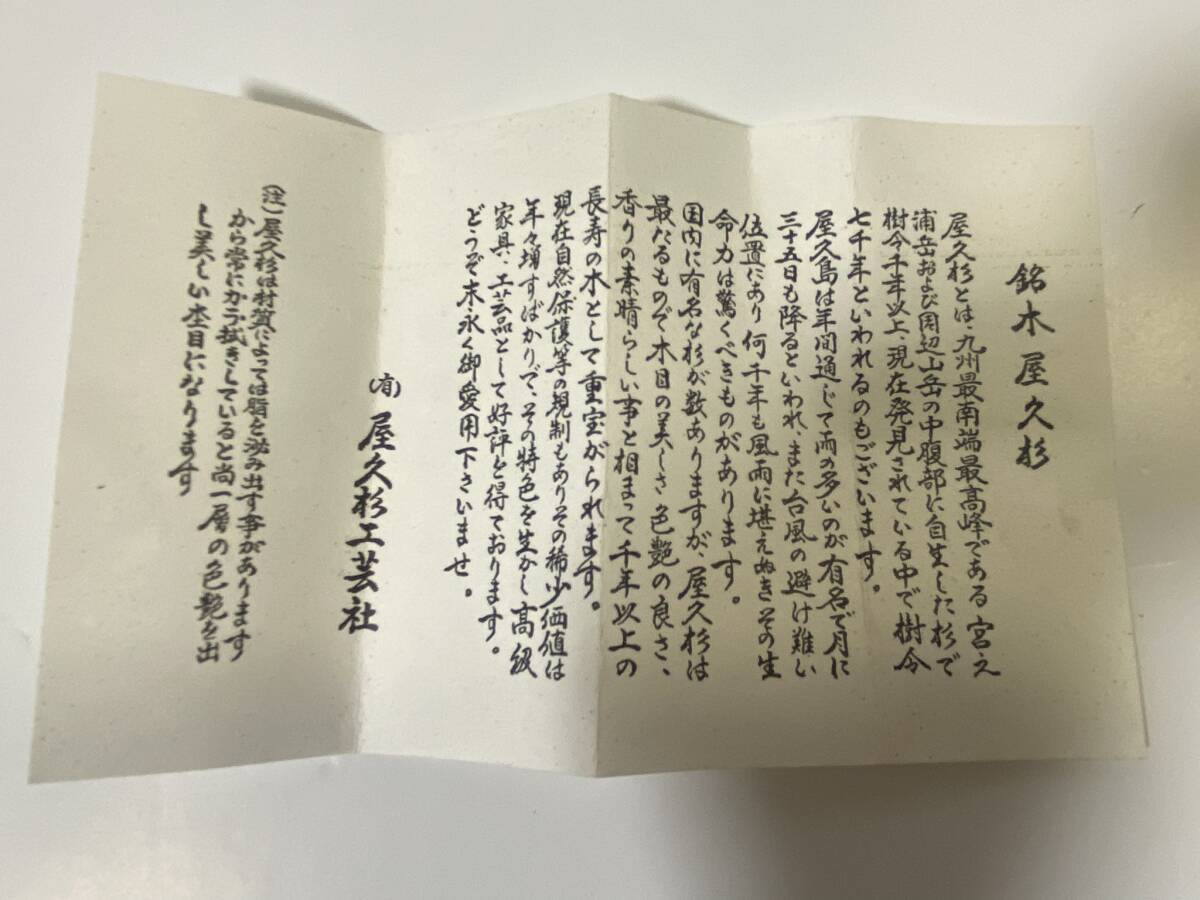 銘木屋久杉
屋久杉とは、九州最南端最高峰である宮之
浦岳および周辺山岳の中腹部に自生した杉で
樹令千年以上、現在発見されている中で樹令
七千年といわれるのもございます。
屋久島は年間通じて雨の多いのが有名で月に
三十五日も降るといわれ、また台風の避け難い
位置にあり何千年も風雨に堪えぬきその生
命力は驚くべきものがあります。
国内に有名な杉が数ありますが、屋久杉は
最たるもので木目の美しさ色艶の良さ、
香りの素晴らしい事と相まって千年以上の
長寿の木として重宝がられます。
現在自然保護等の規制もありその稀少価値は
年々増すばかりで、その特色を生かし高級
家具、工芸品として好評を得ております。
どうぞ末永く御愛用下さいませ。
(有)屋久杉工芸社
(注)屋久杉は材質によっては脂を泌み出す事があります
から常にカラ拭きしていると尚一層の色艶を出
し美しい杢目になります